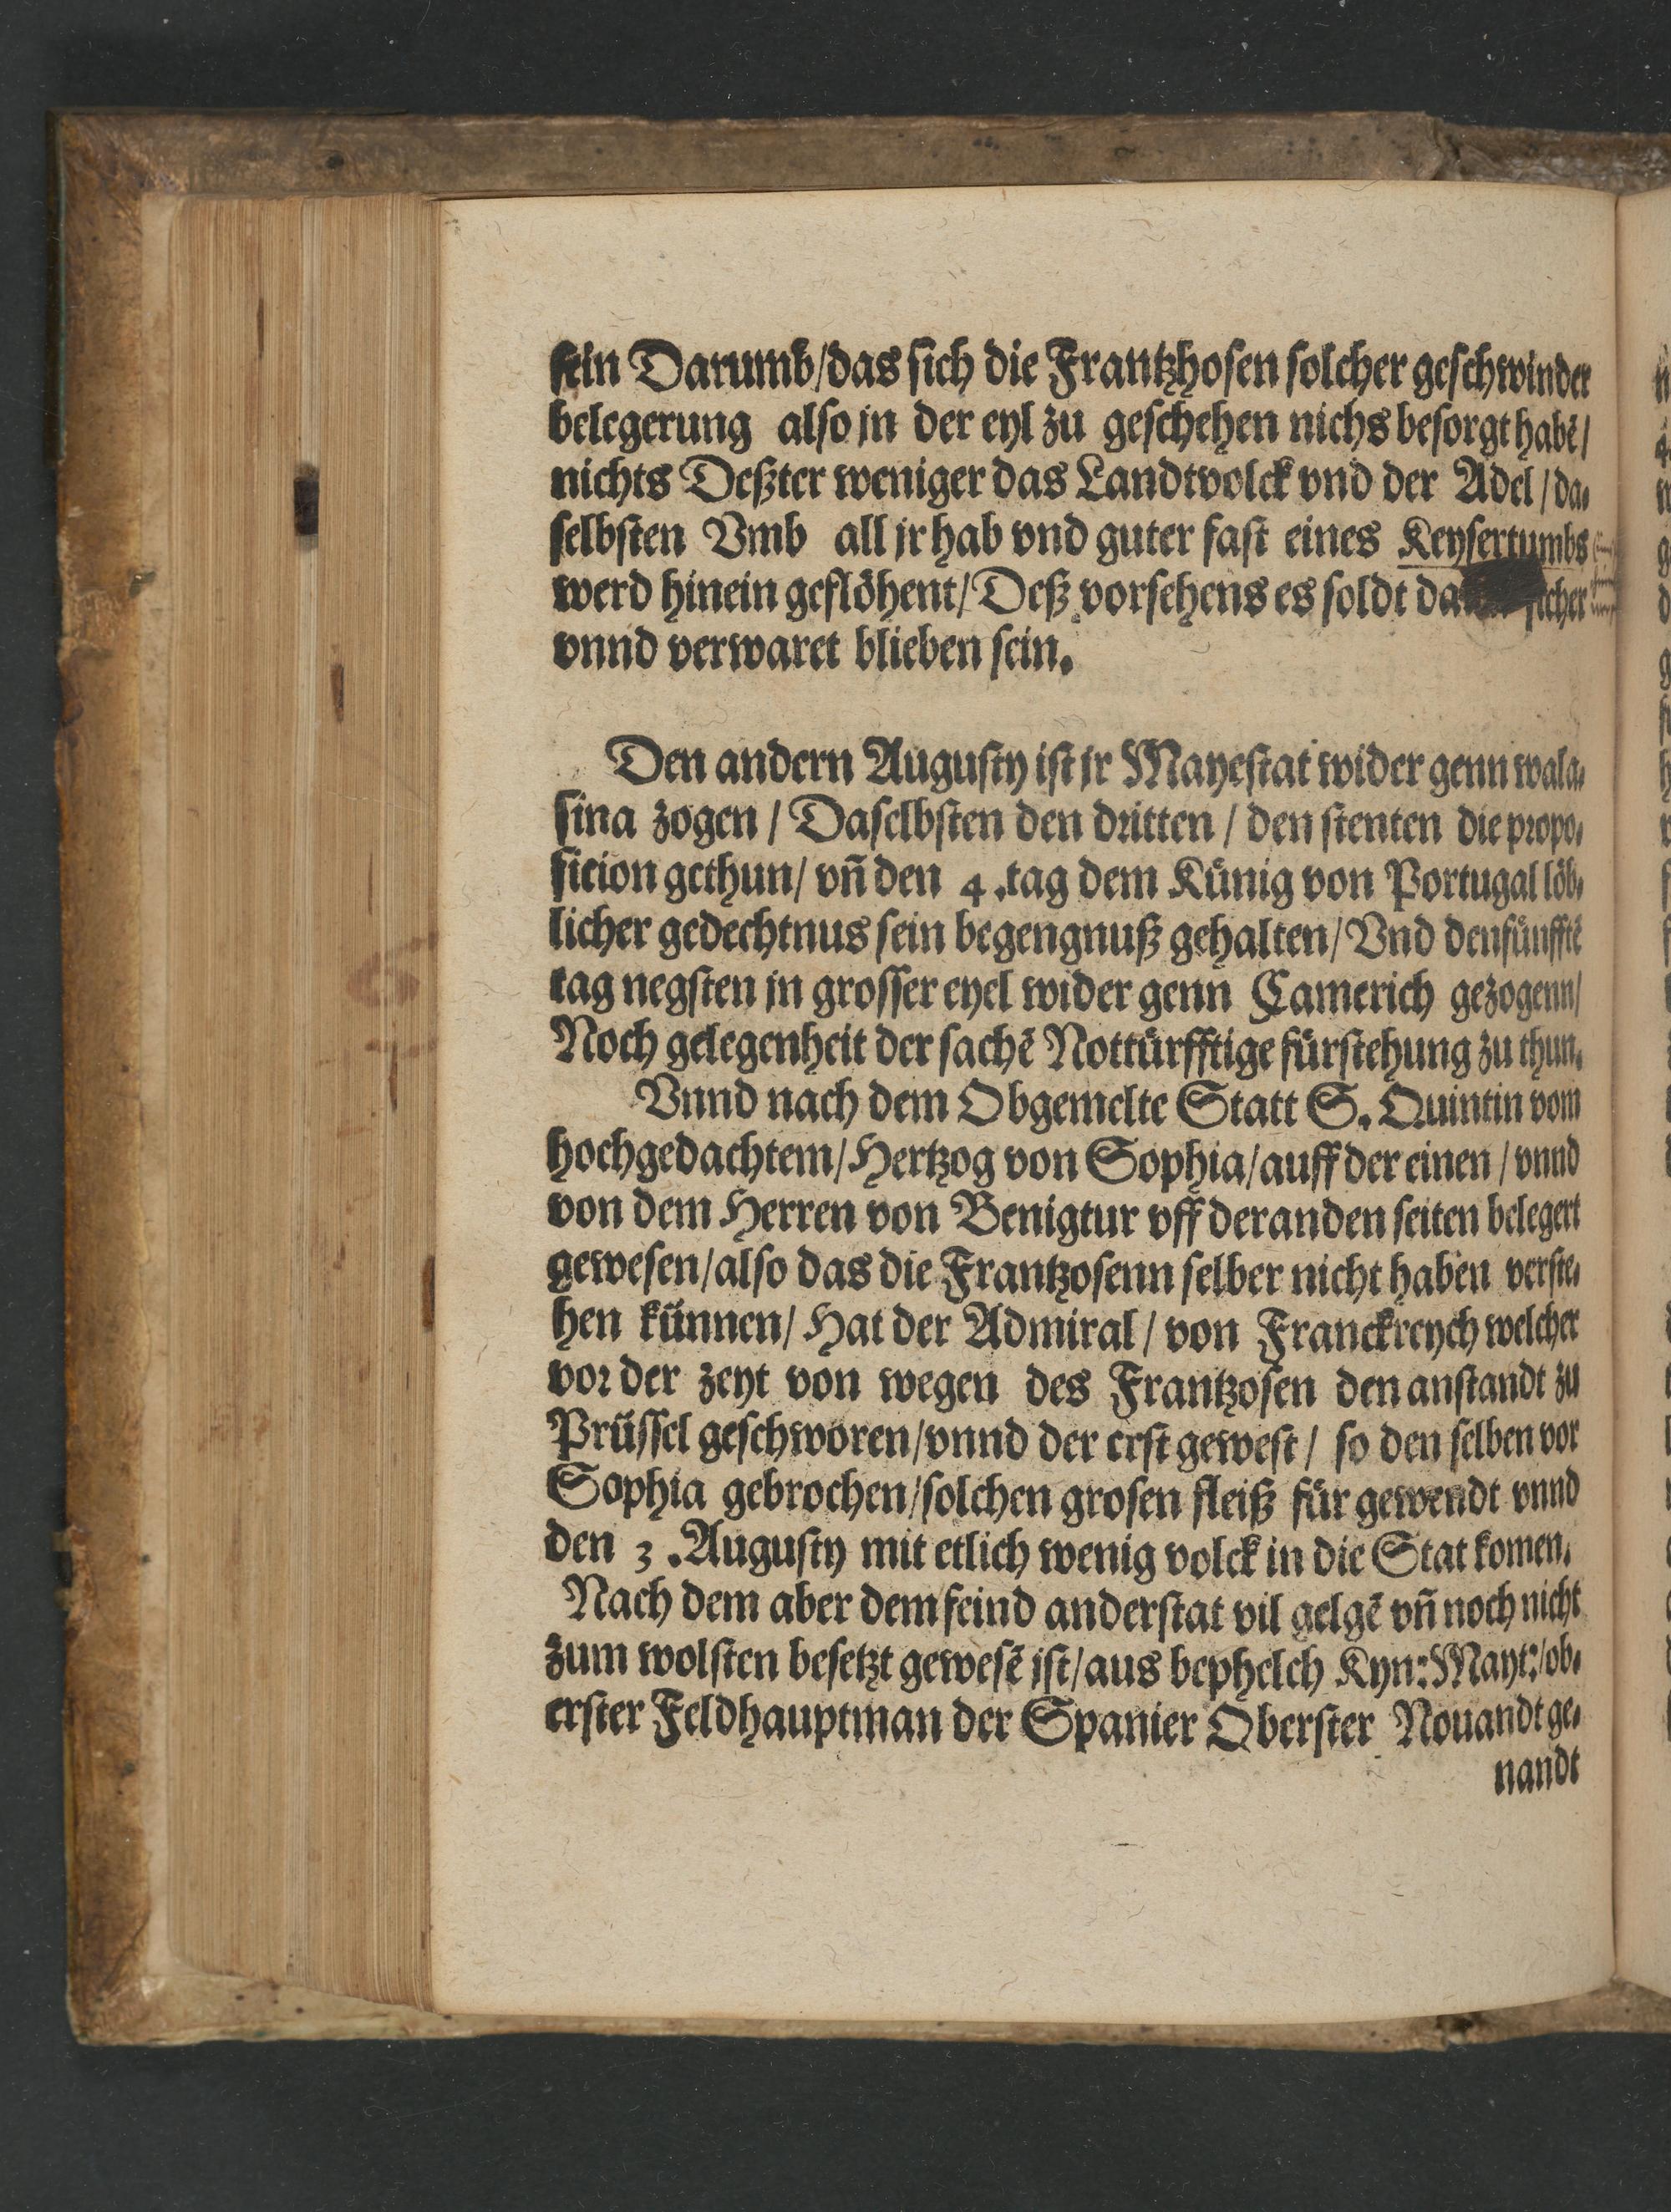 sein Darumb/das sich die Frantzhosen solcher geschwinder
belegerung also jn der eyl zu geschehen nichs besorgt habẽ/
nichts Deßter weniger das Landtvolck vnd der Adel/da⸗
selbsten Vmb all jr hab vnd guter fast eines Keysertumbs
werd hinein geflöhent/Deß vorsehens es soldt sicher
vnnd verwaret blieben sein.
Den andern Augusty ist jr Mayestat wider genn wala⸗
sina zogen/Daselbsten den dritten/den stenten die propo⸗
sicion gethun/vñ den 4.tag dem Künig von Portugal löb⸗
licher gedechtnus sein begengnuß gehalten/Vnd den fünfftẽ
tag negsten jn grosser eyel wider genn Camerich gezogenn/
Noch gelegenheit der sachẽ Nottürfftige fürstehung zu thun.
Vnnd nach dem Obgemelte Statt S. Quintin vom
hochgedachtem/Hertzog von Sophia/auff der einen/vnnd
von dem Herren von Benigtur vff der anden seiten belegert
gewesen/also das die Frantzosenn selber nicht haben verste⸗
hen künnen/Hat der Admiral/von Franckreych welcher
vor der zeyt von wegen des Frantzosen den anstandt zu
Prüssel geschworen/vnnd der erst gewest/ so den selben vor
Sophia gebrochen/solchen grosen fleiß für gewendt vnnd
den 3.Augusty mit etlich wenig volck in die Stat komen.
Nach dem aber dem feind anderstat vil gelgẽ vñ noch nicht
zum wolsten besetzt gewesẽ jst/aus bephelch Kyn:Mayt:/ob⸗
erster Feldhauptman der Spanier Oberster Nouandt ge⸗
nandt